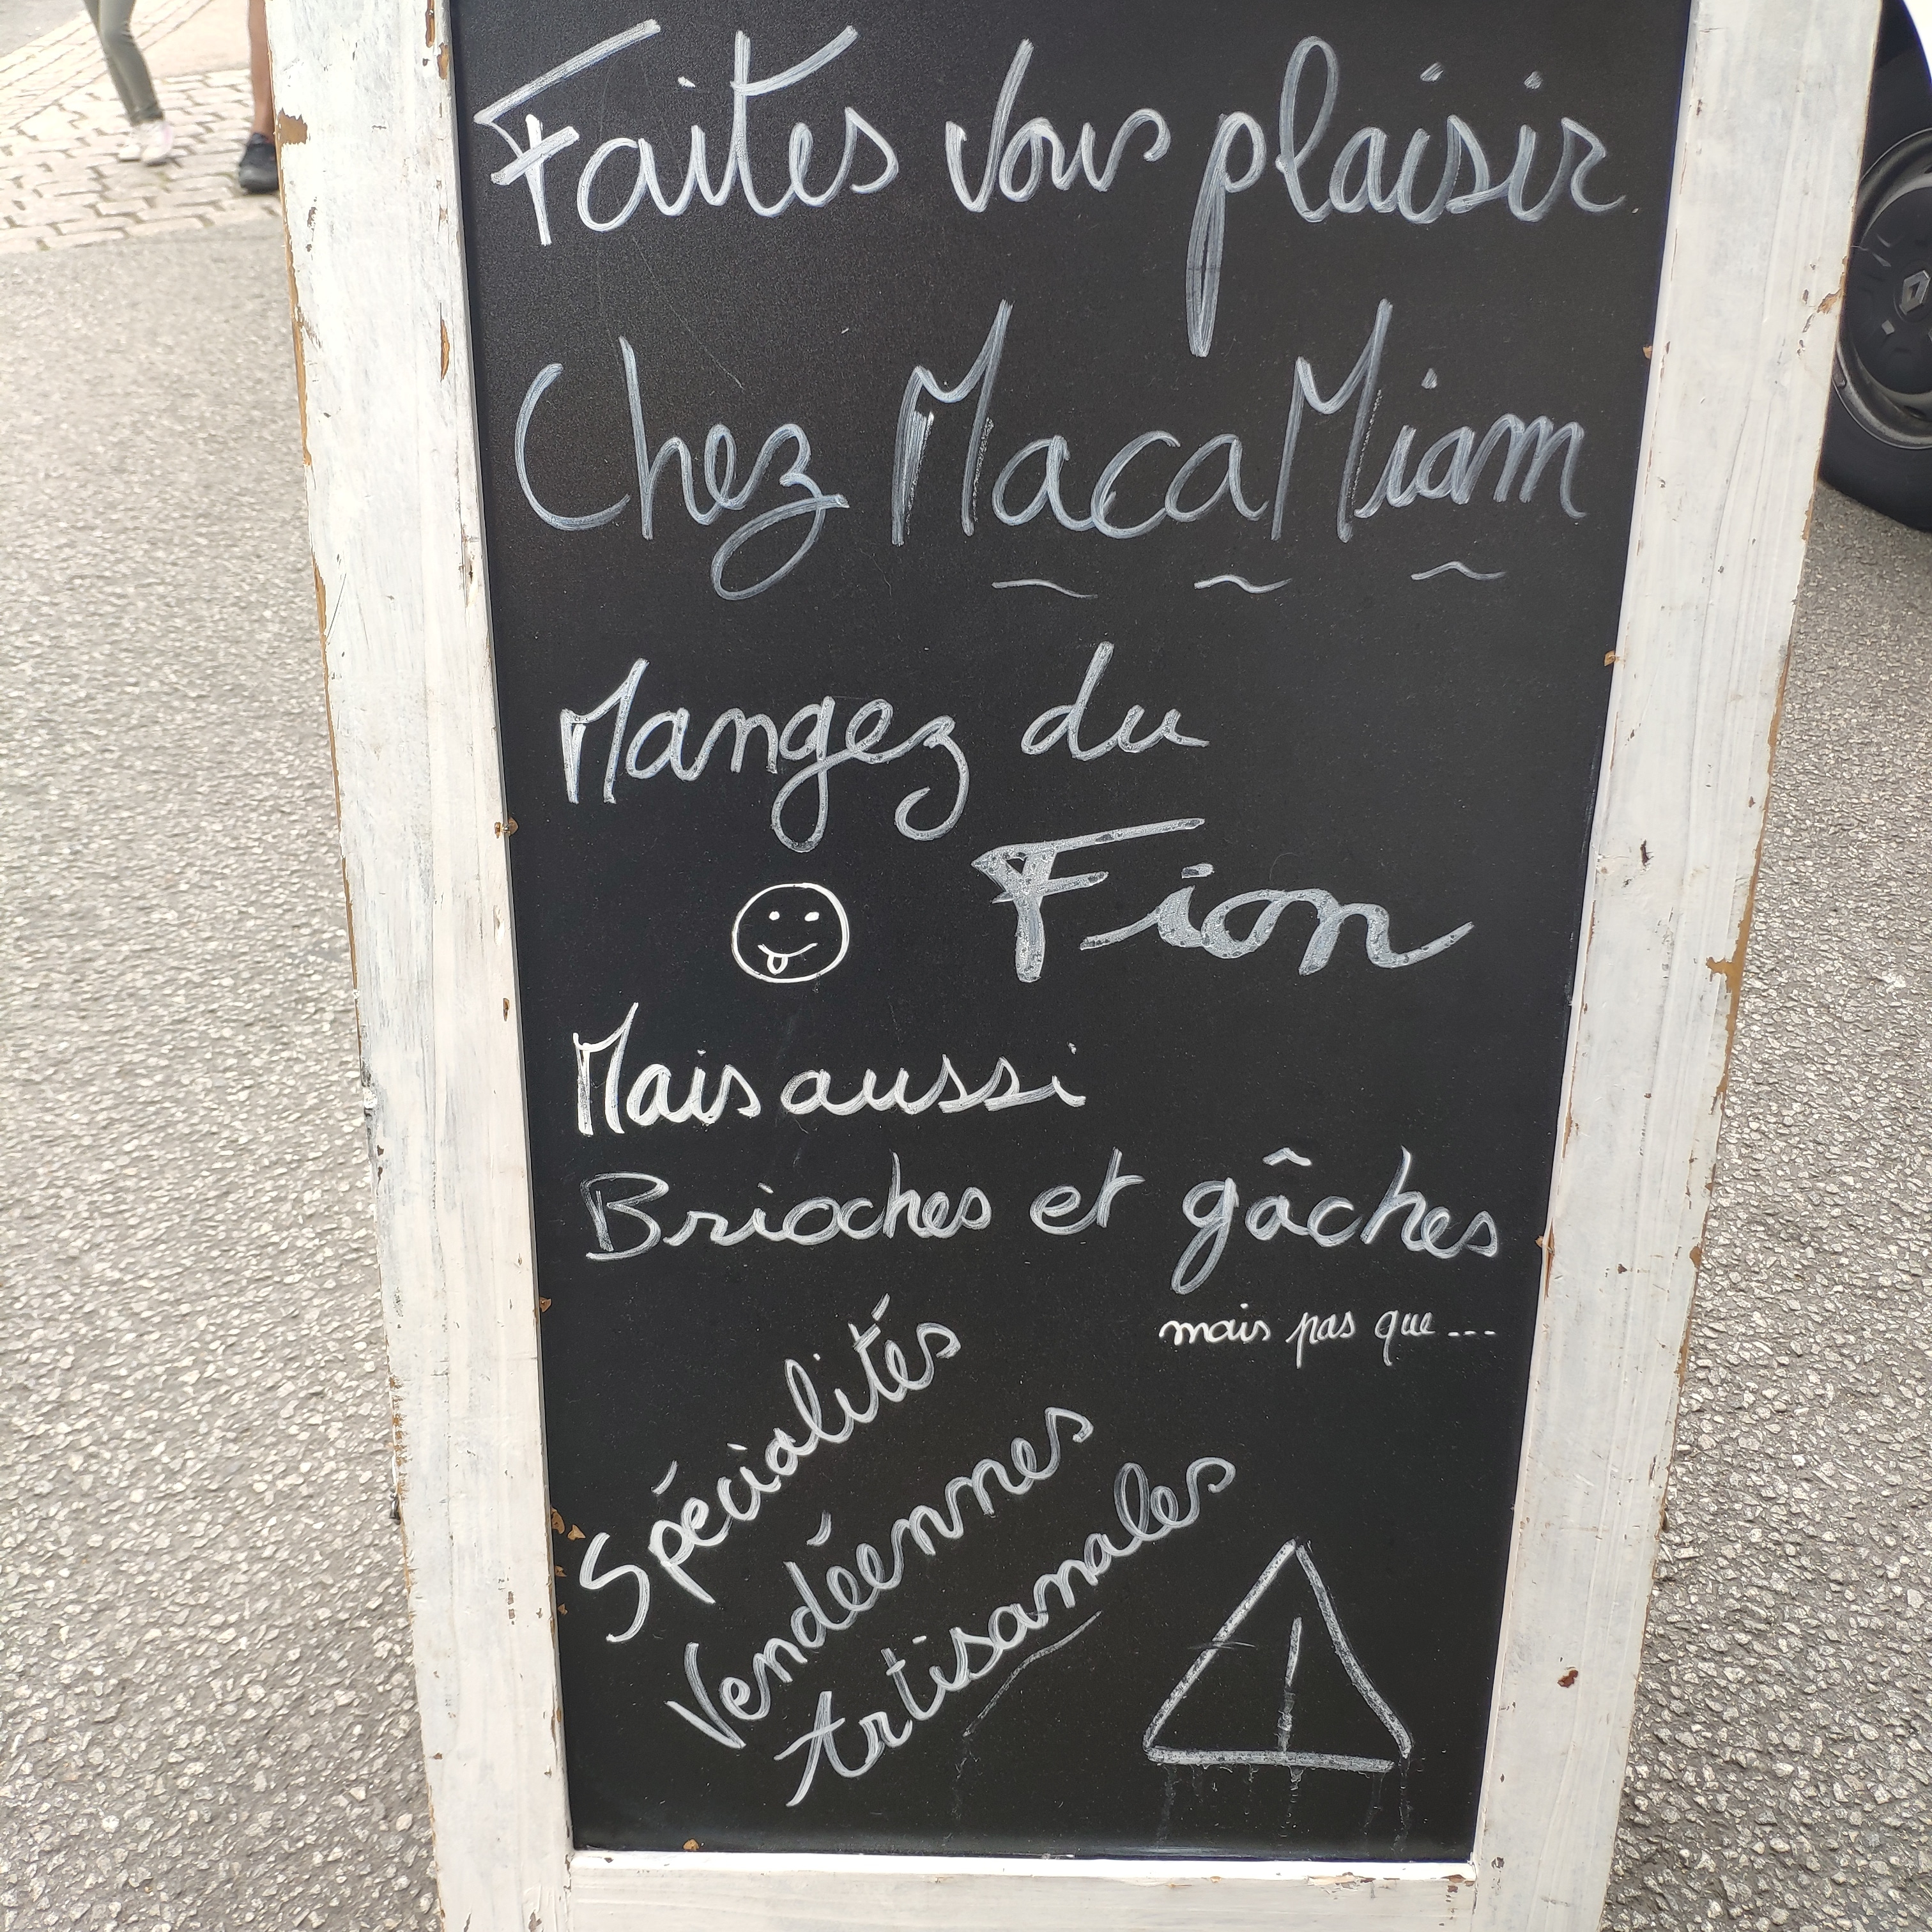 Faites vous plaisir
Chez MacaMiam
Mangez du
Fion
Mais aussi
Brioches et gâches
mais pas que...
Spécialités
Vendéennes
Artisanales